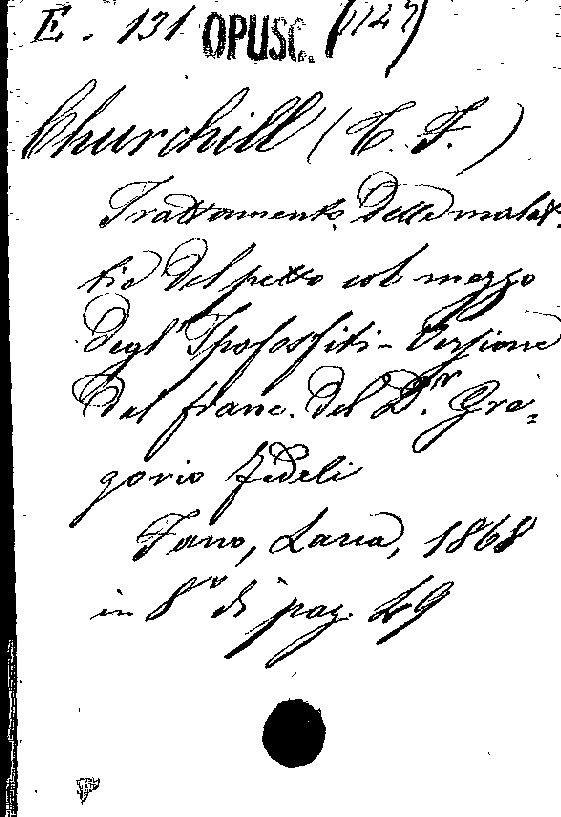 E. 131 OPUSC. (127)
Churchill (C. F.)
Trattamento delle malat-
tie del petto col mezzo
degl' Ipofosfiti - Versione
dal franc. del D.r Gre=
gorio Fedeli
Fano, Lana, 1868
in 8° di pag. 49